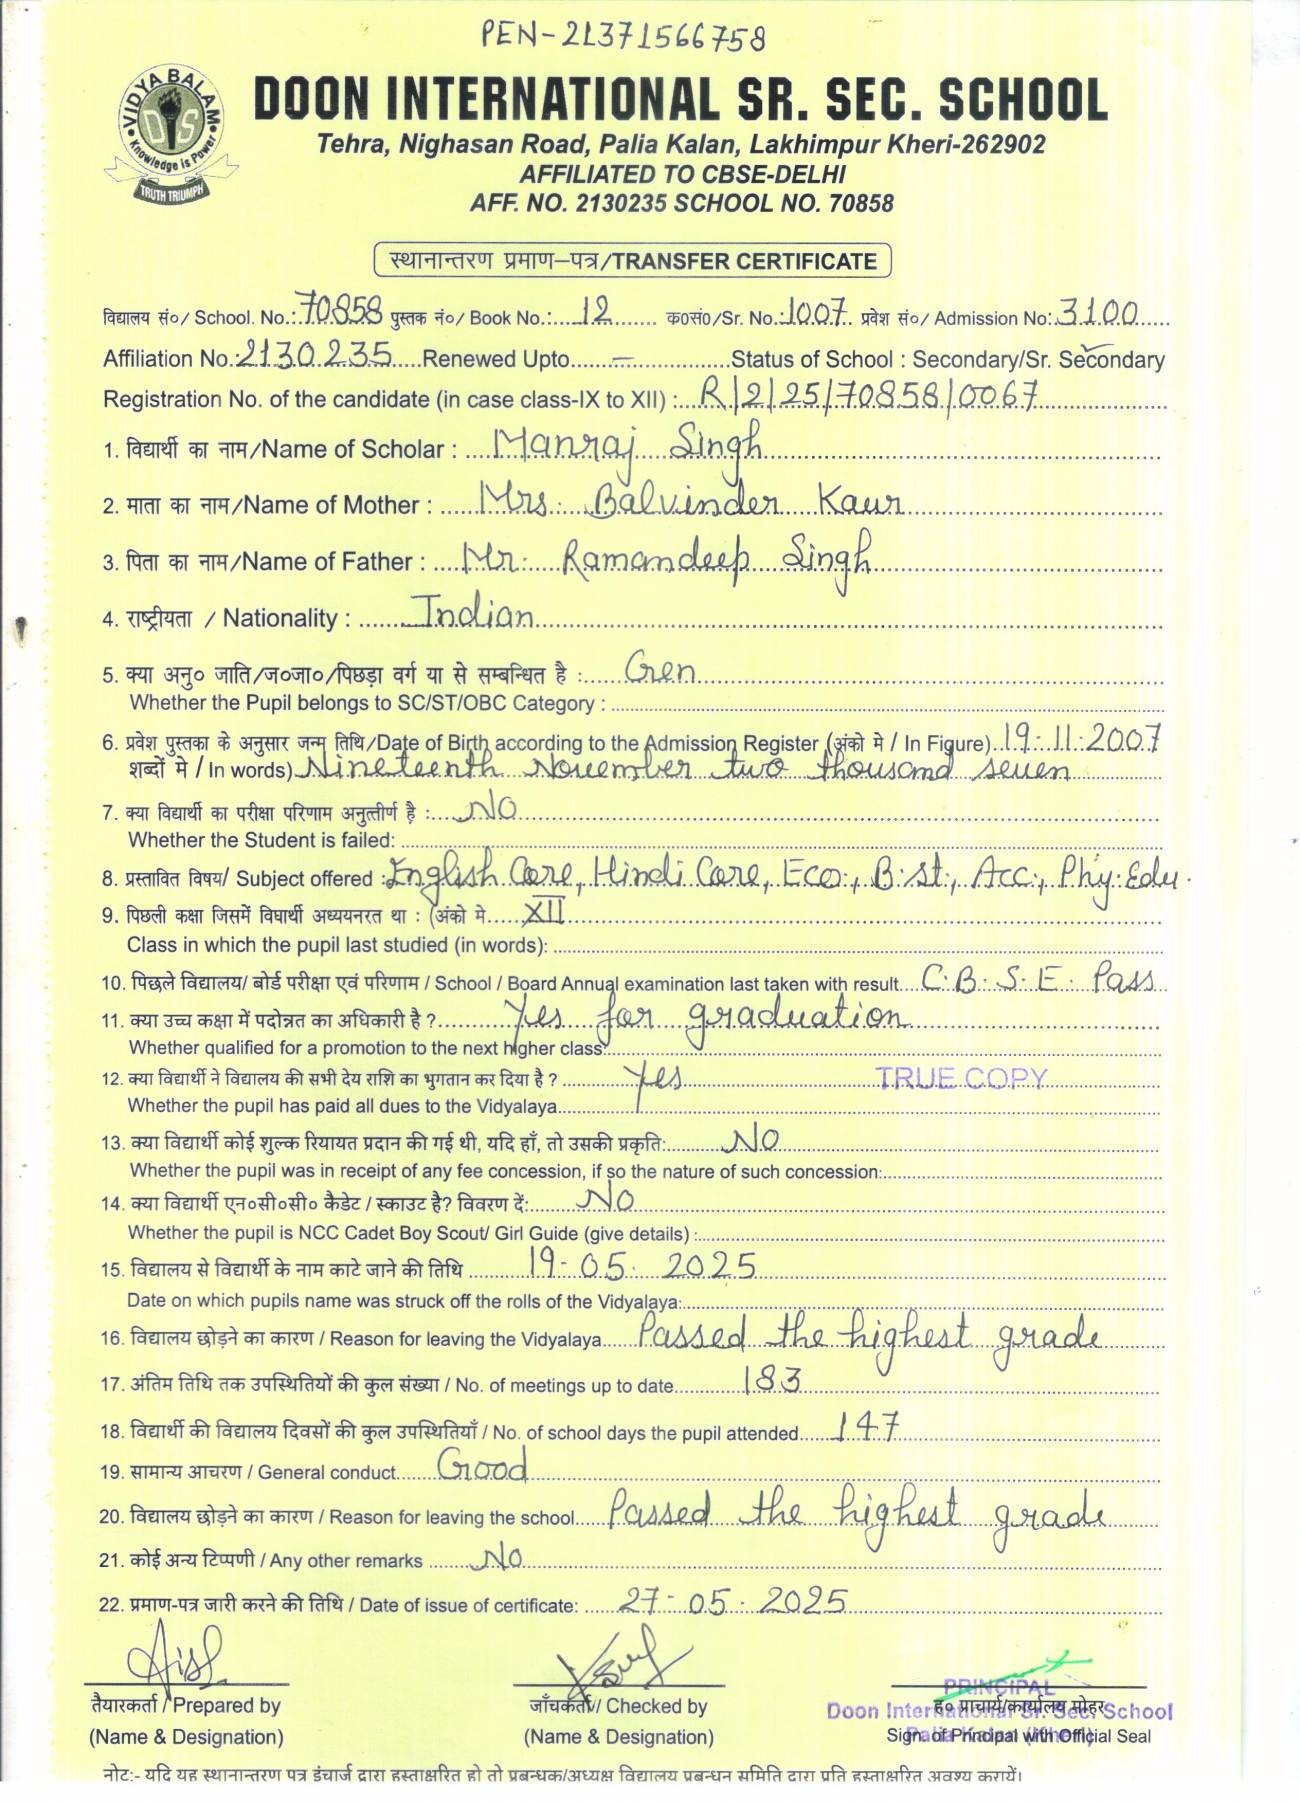 PEN-21371566758
VIDYA BALAM
DIS
Knowledge is Power
TRUTH TRIUMPH
DOON INTERNATIONAL SR. SEC. SCHOOL
Tehra, Nighasan Road, Palia Kalan, Lakhimpur Kheri-262902
AFFILIATED TO CBSE-DELHI
AFF. NO. 2130235 SCHOOL NO. 70858
स्थानान्तरण प्रमाण-पत्र/TRANSFER CERTIFICATE
विद्यालय सं०/ School. No.: 70858 पुस्तक नं०/ Book No.: 12 क०सं०/Sr. No.: 1007 प्रवेश सं०/ Admission No: 3100
Affiliation No.: 2130235 Renewed Upto — Status of School : Secondary/Sr. Secondary
Registration No. of the candidate (in case class-IX to XII) : R/2/25/70858/0067
1. विद्यार्थी का नाम/Name of Scholar : Manraj Singh
2. माता का नाम/Name of Mother : Mrs. Balvinder Kaur
3. पिता का नाम/Name of Father : Mr. Ramandeep Singh
4. राष्ट्रीयता / Nationality : Indian
5. क्या अनु० जाति/ज०जा०/पिछड़ा वर्ग या से सम्बन्धित है : Gen
Whether the Pupil belongs to SC/ST/OBC Category :
6. प्रवेश पुस्तका के अनुसार जन्म तिथि/Date of Birth according to the Admission Register (अंको मे / In Figure) 19-11-2007
शब्दों मे / In words) Nineteenth November two thousand seven
7. क्या विद्यार्थी का परीक्षा परिणाम अनुत्तीर्ण है : NO
Whether the Student is failed:
8. प्रस्तावित विषय/ Subject offered : English Core, Hindi Core, Eco., B.st., Acc., Phy. Edu.
9. पिछली कक्षा जिसमें विघार्थी अध्ययनरत था : (अंको मे XII
Class in which the pupil last studied (in words):
10. पिछले विद्यालय/ बोर्ड परीक्षा एवं परिणाम / School / Board Annual examination last taken with result C.B.S.E. Pass
11. क्या उच्च कक्षा में पदोन्नत का अधिकारी है ? Yes for graduation
Whether qualified for a promotion to the next higher class:
12. क्या विद्यार्थी ने विद्यालय की सभी देय राशि का भुगतान कर दिया है ? Yes TRUE COPY
Whether the pupil has paid all dues to the Vidyalaya
13. क्या विद्यार्थी कोई शुल्क रियायत प्रदान की गई थी, यदि हाँ, तो उसकी प्रकृति: NO
Whether the pupil was in receipt of any fee concession, if so the nature of such concession:
14. क्या विद्यार्थी एन०सी०सी० कैडेट / स्काउट है? विवरण दें: NO
Whether the pupil is NCC Cadet Boy Scout/ Girl Guide (give details) :
15. विद्यालय से विद्यार्थी के नाम काटे जाने की तिथि 19-05-2025
Date on which pupils name was struck off the rolls of the Vidyalaya:
16. विद्यालय छोड़ने का कारण / Reason for leaving the Vidyalaya Passed the highest grade
17. अंतिम तिथि तक उपस्थितियों की कुल संख्या / No. of meetings up to date 183
18. विद्यार्थी की विद्यालय दिवसों की कुल उपस्थितियाँ / No. of school days the pupil attended 147
19. सामान्य आचरण / General conduct Good
20. विद्यालय छोड़ने का कारण / Reason for leaving the school Passed the highest grade
21. कोई अन्य टिप्पणी / Any other remarks No
22. प्रमाण-पत्र जारी करने की तिथि / Date of issue of certificate: 27-05-2025
PRINCIPAL
तैयारकर्ता / Prepared by जाँचकर्ता / Checked by ह० प्राचार्य/कार्यालय मोहर
Doon International Sr. Sec. School
(Name & Designation) (Name & Designation) Sign. of Principal with Official Seal
Palia Kalan (Kheri)
नोट:- यदि यह स्थानान्तरण पत्र इंचार्ज द्वारा हस्ताक्षरित हो तो प्रबन्धक/अध्यक्ष विद्यालय प्रबन्धन समिति द्वारा प्रति हस्ताक्षरित अवश्य करायें।